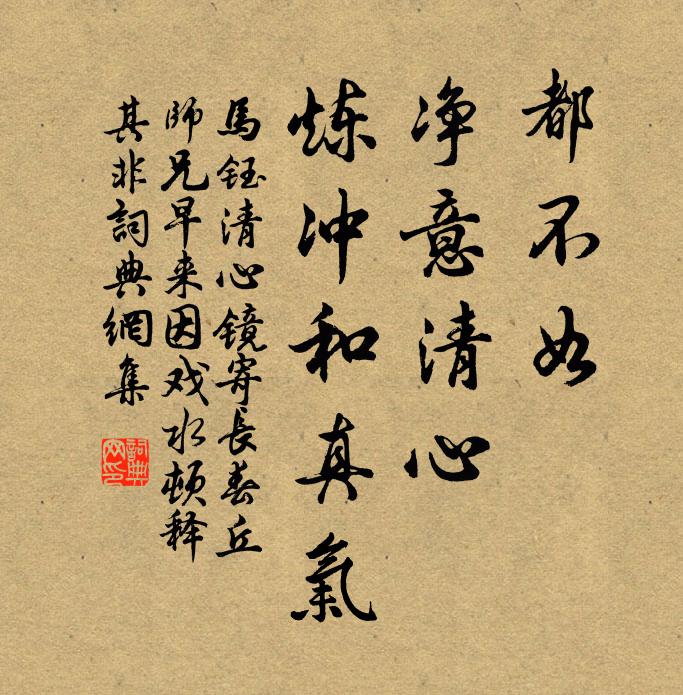 都不如
净意清心
炼冲和真氣
馬鈺清心镜寄長春丘
師兄早来因戏水頓释
其非詞典網集
詞典网印